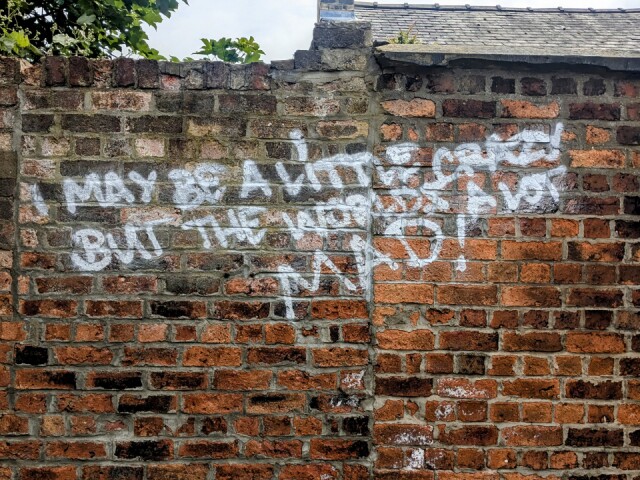 I MAY BE A LiTTLE CRAZY!
BUT THE WORLDS A LOT
MAD!